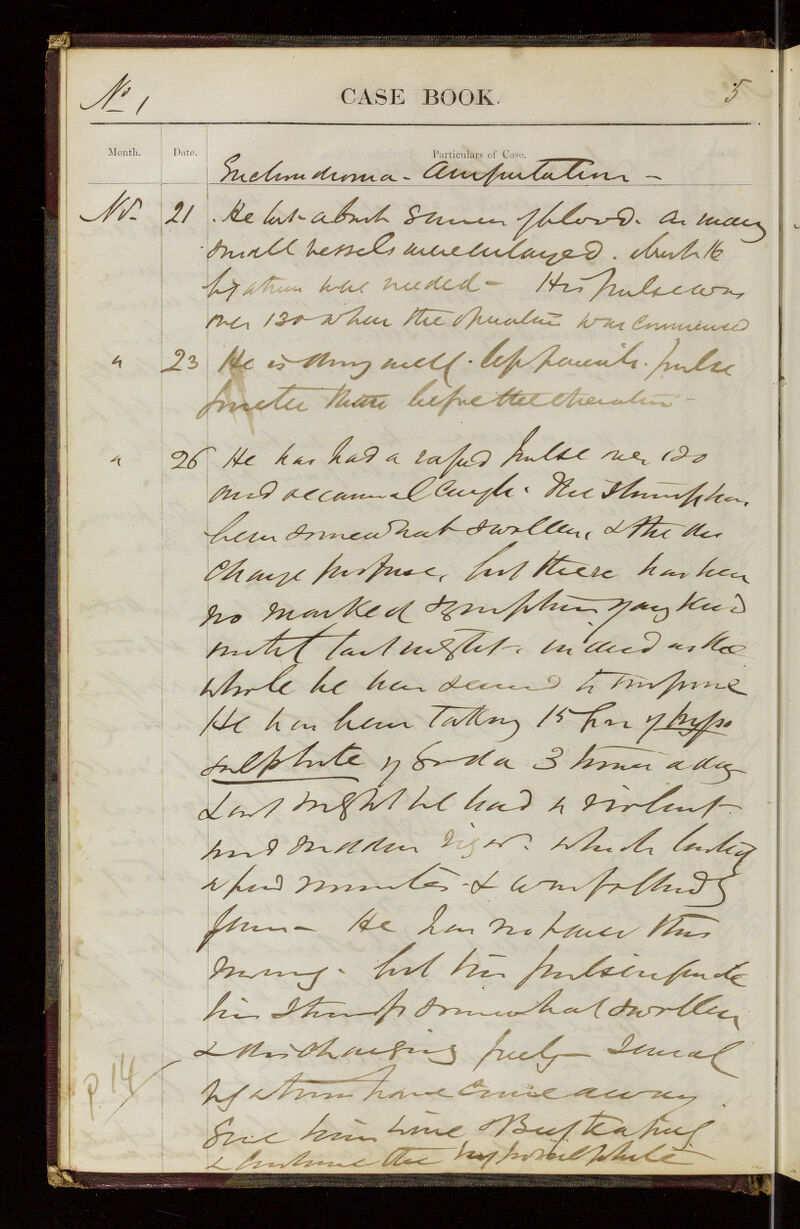 No 1 CASE BOOK. 5
Month. Date. Particulars of Case.
Enchondroma - Amputation -
Nov 21. He lost about of blood. as many
small vessels were enlarged. about 16
ligatures was needed - His pulse was
over 130 when the operation was commenced
" 23 He is doing well. pulse
than before the operation -
" 26 He has had a rapid pulse over 120
and occasional cough. The stump has
been somewhat swollen, & the dis
charge profuse, but there has been
no marked symptoms of any kind
until last night. indeed on the
whole he has seemed to improve
He has been taking 15 grs of hypo
sulphite of Soda 3 times a day
Last night he had a violent
and sudden rigor. which lasted
a few minutes & was followed by
fever - He has no fever this
morning. but his pulse is quick
his stump somewhat swollen
& discharging freely - Several
ligatures have come away.
Give him wine & Beef tea freely
& continue the hyposulphite
p. 14